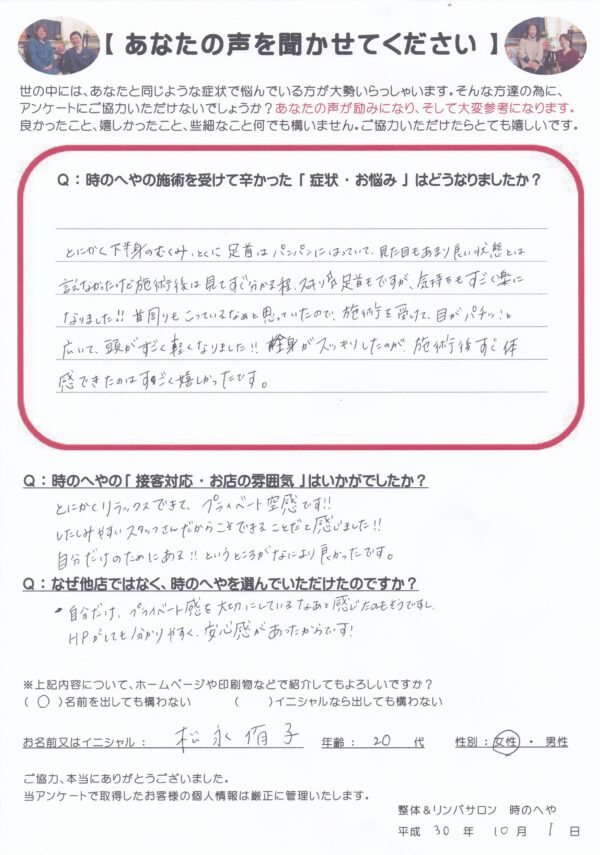 【 あなたの声を聞かせてください 】
世の中には、あなたと同じような症状で悩んでいる方が大勢いらっしゃいます。そんな方達の為に、
アンケートにご協力いただけないでしょうか？あなたの声が励みになり、そして大変参考になります。
良かったこと、嬉しかったこと、些細なこと何でも構いません。ご協力いただけたらとても嬉しいです。
Q：時のへやの施術を受けて辛かった「 症状・お悩み 」はどうなりましたか？
とにかく下半身のむくみ、とくに足首はパンパンにはっていて、見た目もあまり良い状態とは
言えなかったけど施術後は見てすぐ分かる程、スッキリ!!足首もですが、気持ちもすごく楽に
なりました!!首周りもこっているなぁと思っていたので、施術を受けて、目がパチッ!と
広いて、頭がすごく軽くなりました!!全身がスッキリしたのが、施術後すぐ体
感できたのはすごく嬉しかったです。
Q：時のへやの「 接客対応・お店の雰囲気 」はいかがでしたか？
とにかくリラックスできて、プライベート空感です!!
したしみやすいスタッフさんだからこそできることだと感じました!!
自分だけのためにある!!というところがなにより良かったです。
Q：なぜ他店ではなく、時のへやを選んでいただけたのですか？
・自分だけ、プライベート感を大切にしているなぁと感じたのもそうですし、
HPがとても分かりやすく、安心感があったからです!
※上記内容について、ホームページや印刷物などで紹介してもよろしいですか？
（ ○ ）名前を出しても構わない （ ）イニシャルなら出しても構わない
お名前又はイニシャル： 松永侑子 年齢： 20 代 性別：女性・男性
ご協力、本当にありがとうございました。
当アンケートで取得したお客様の個人情報は厳正に管理いたします。
整体＆リンパサロン 時のへや
平成 30 年 10 月 1 日